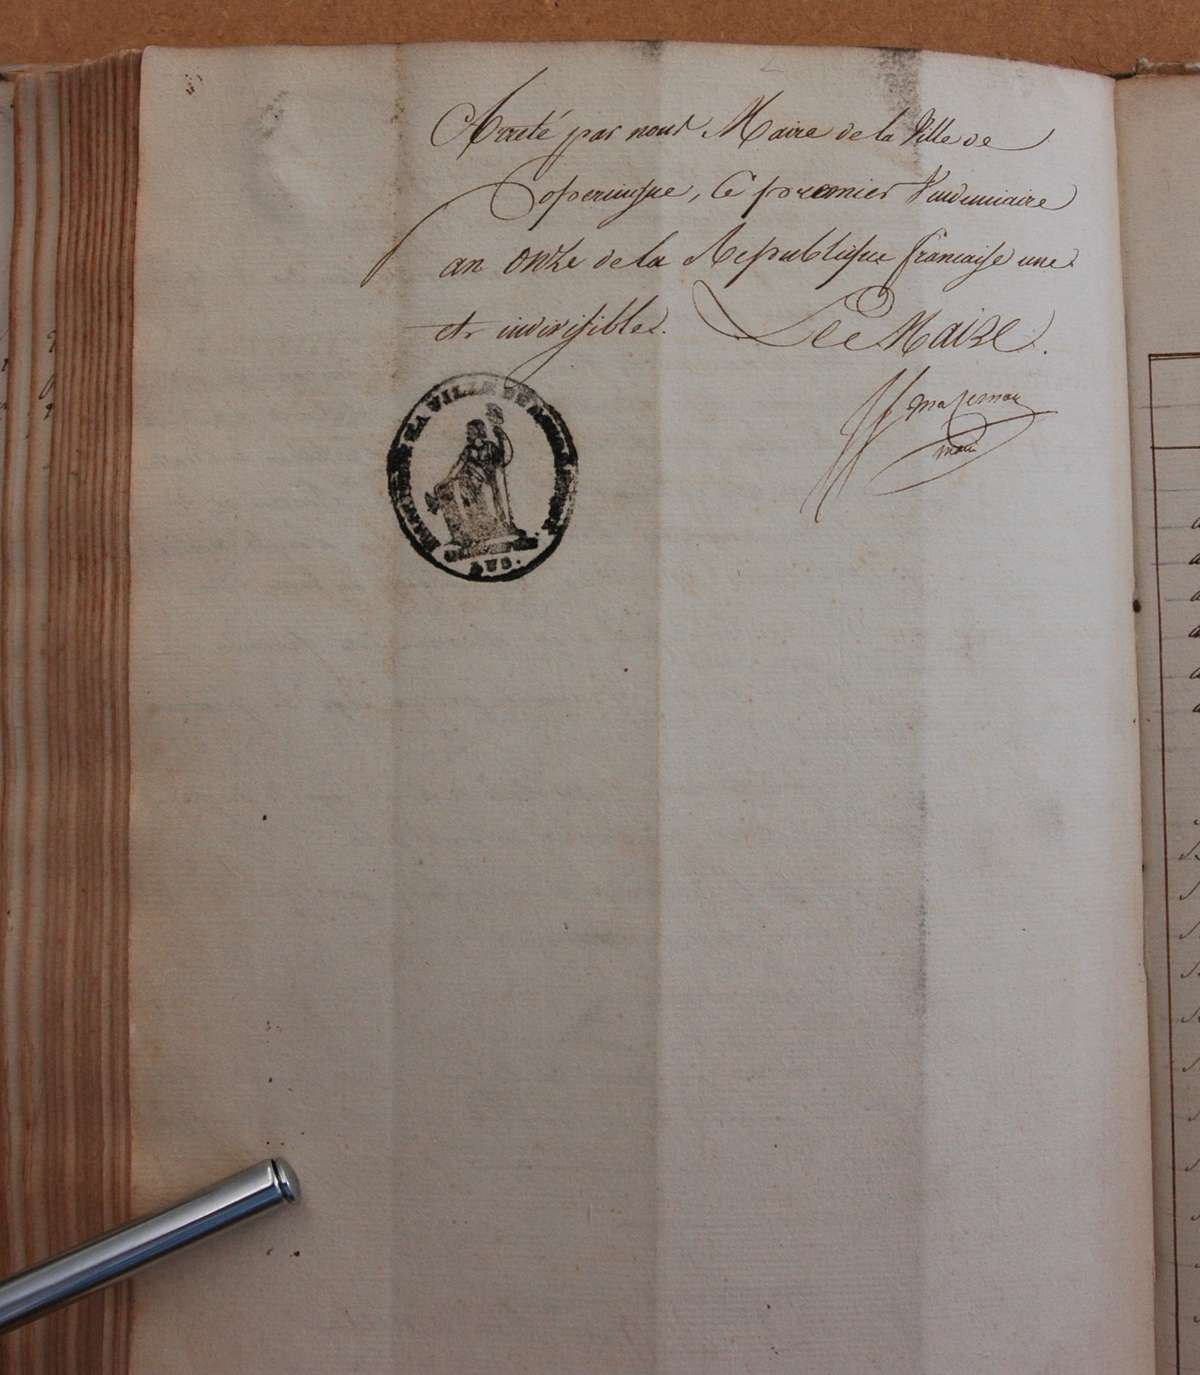 Arreté par nous Maire de la Ville de
Poperingue, le premier Vendemiaire
an onze de la Republique francaise une
et indivisible.
Le Maire.
maire
LA VILLE DE
AUS.